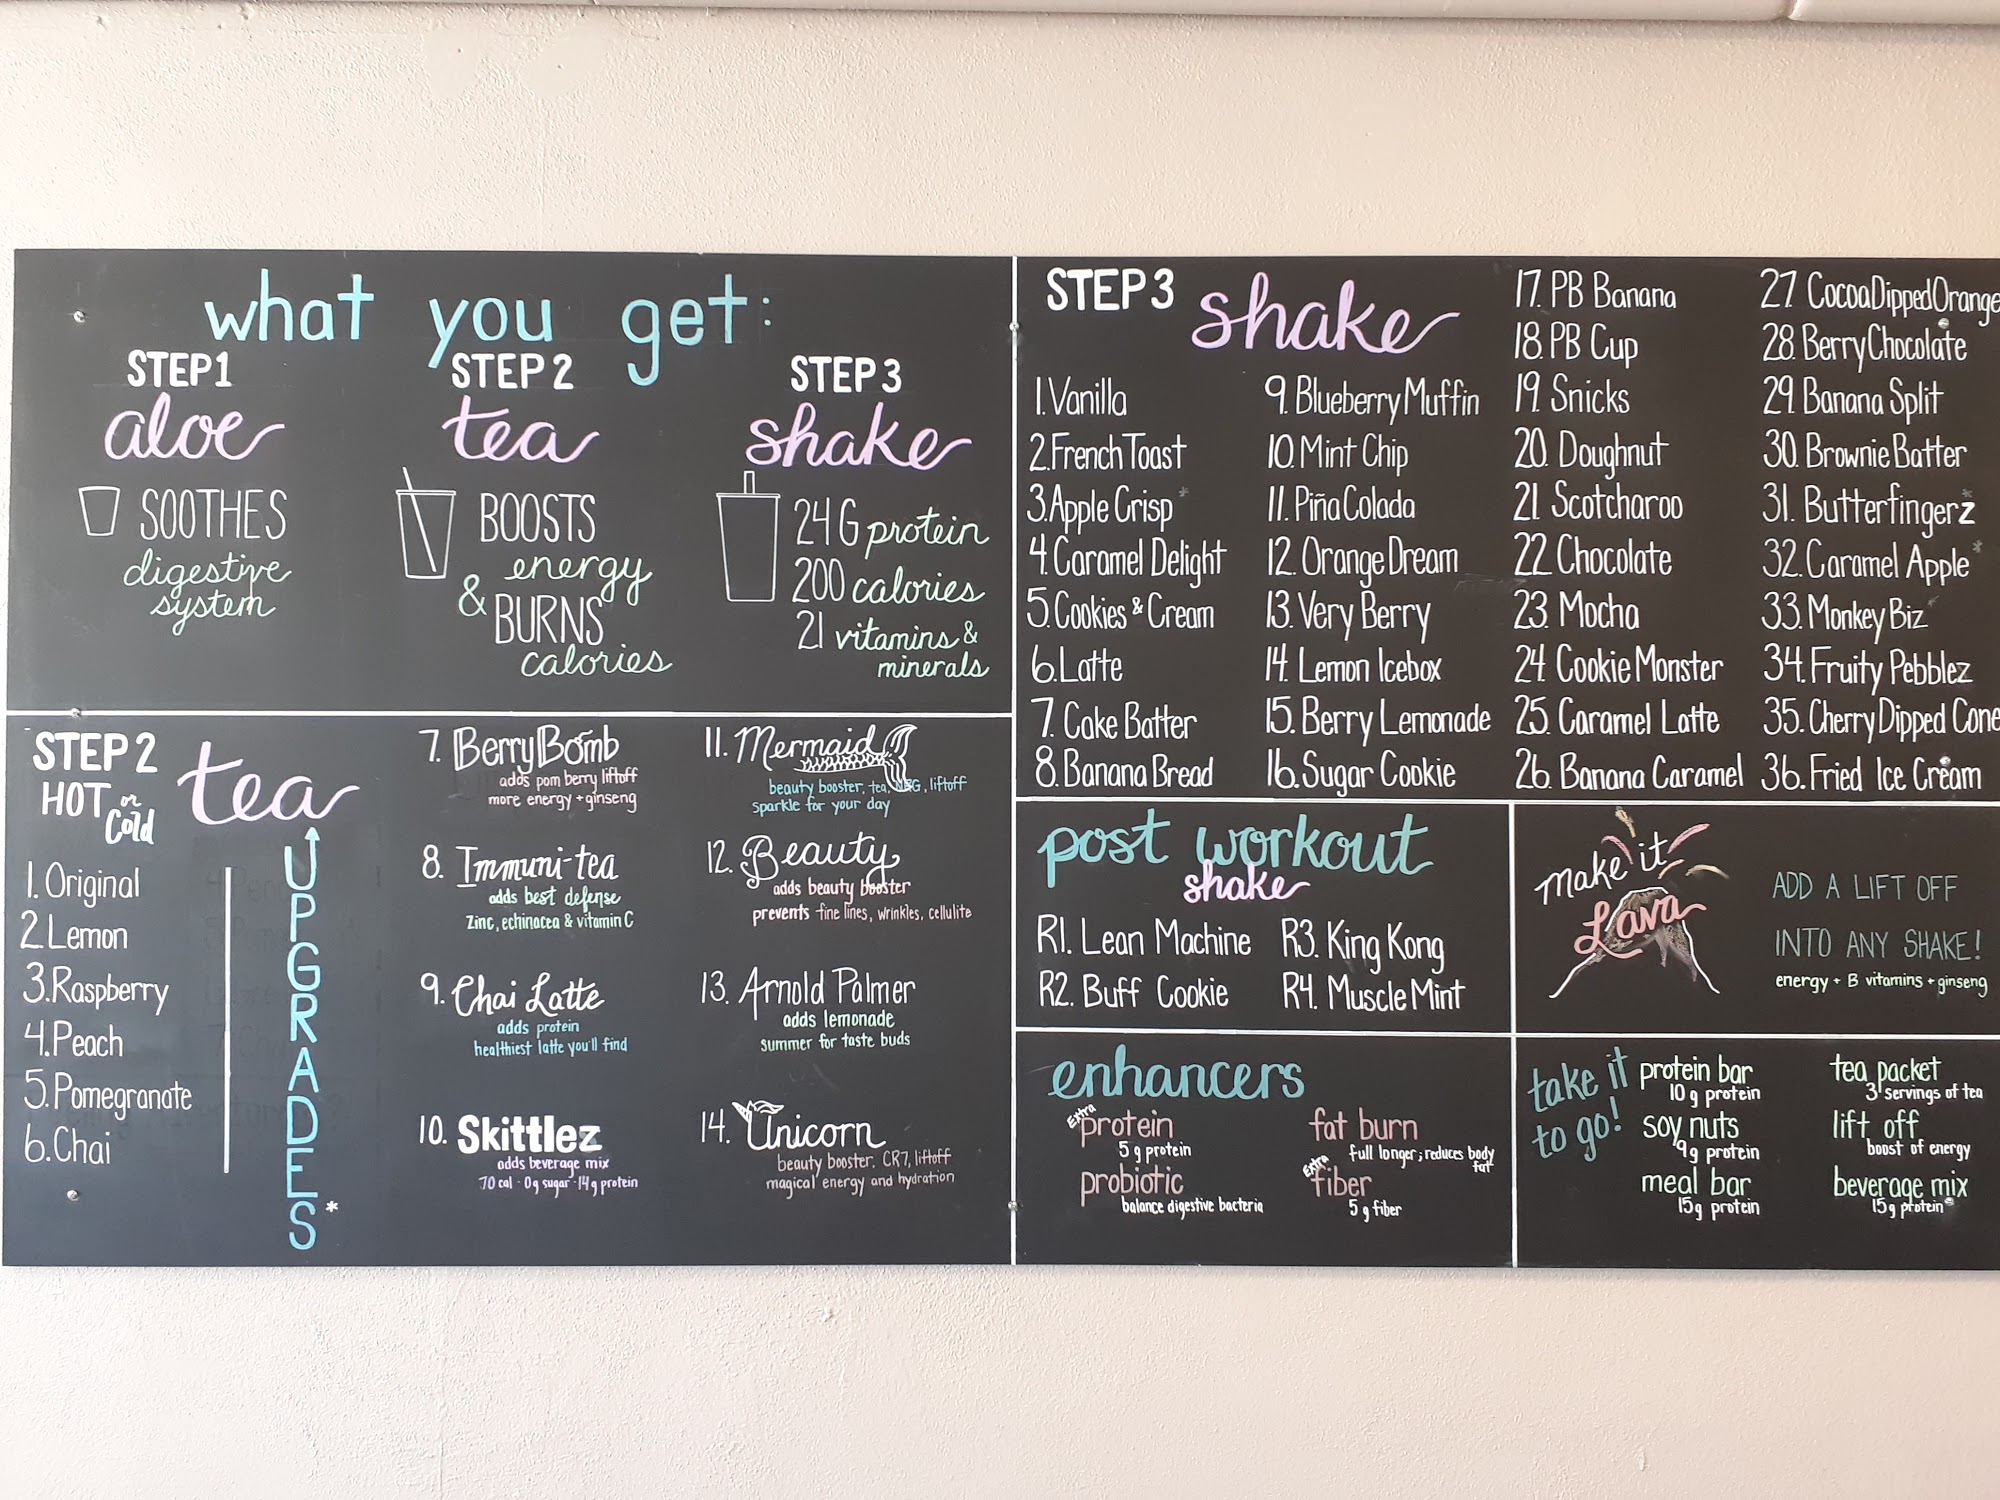 what you get:
STEP 1
aloe
SOOTHES
digestive
system
STEP 2
tea
BOOSTS
energy
& BURNS
calories
STEP 3
shake
24G protein
200 calories
21 vitamins &
minerals
STEP 2
HOT or Cold
tea
1. Original
2. Lemon
3. Raspberry
4. Peach
5. Pomegranate
6. Chai
UPGRADES*
7. Berry Bomb
adds pom berry liftoff
more energy + ginseng
8. Immuni-tea
adds best defense
Zinc, echinacea & vitamin C
9. Chai Latte
adds protein
healthiest latte you'll find
10. Skittlez
adds beverage mix
70 cal · 0g sugar · 14g protein
11. Mermaid
beauty booster, tea, , liftoff
sparkle for your day
12. Beauty
adds beauty booster
prevents fine lines, wrinkles, cellulite
13. Arnold Palmer
adds lemonade
summer for taste buds
14. Unicorn
beauty booster, CR7, liftoff
magical energy and hydration
STEP 3 shake
1. Vanilla
2. French Toast
3. Apple Crisp*
4. Caramel Delight
5. Cookies & Cream
6. Latte
7. Cake Batter
8. Banana Bread
9. Blueberry Muffin
10. Mint Chip
11. Piña Colada
12. Orange Dream
13. Very Berry
14. Lemon Icebox
15. Berry Lemonade
16. Sugar Cookie
17. PB Banana
18. PB Cup
19. Snicks
20. Doughnut
21. Scotcharoo
22. Chocolate
23. Mocha
24. Cookie Monster
25. Caramel Latte
26. Banana Caramel
27. Cocoa Dipped Orange
28. Berry Chocolate
29. Banana Split
30. Brownie Batter
31. Butterfingerz*
32. Caramel Apple*
33. Monkey Biz*
34. Fruity Pebblez
35. Cherry Dipped Cone
36. Fried Ice Cream
post workout
shake
R1. Lean Machine
R2. Buff Cookie
R3. King Kong
R4. Muscle Mint
make it
Lava
ADD A LIFT OFF
INTO ANY SHAKE!
energy + B vitamins + ginseng
enhancers
Extra protein
5 g protein
probiotic
balance digestive bacteria
fat burn
full longer; reduces body
fat
Extra fiber
5 g fiber
take it
to go!
protein bar
10 g protein
soy nuts
9g protein
meal bar
15g protein
tea packet
3 servings of tea
lift off
boost of energy
beverage mix
15g protein